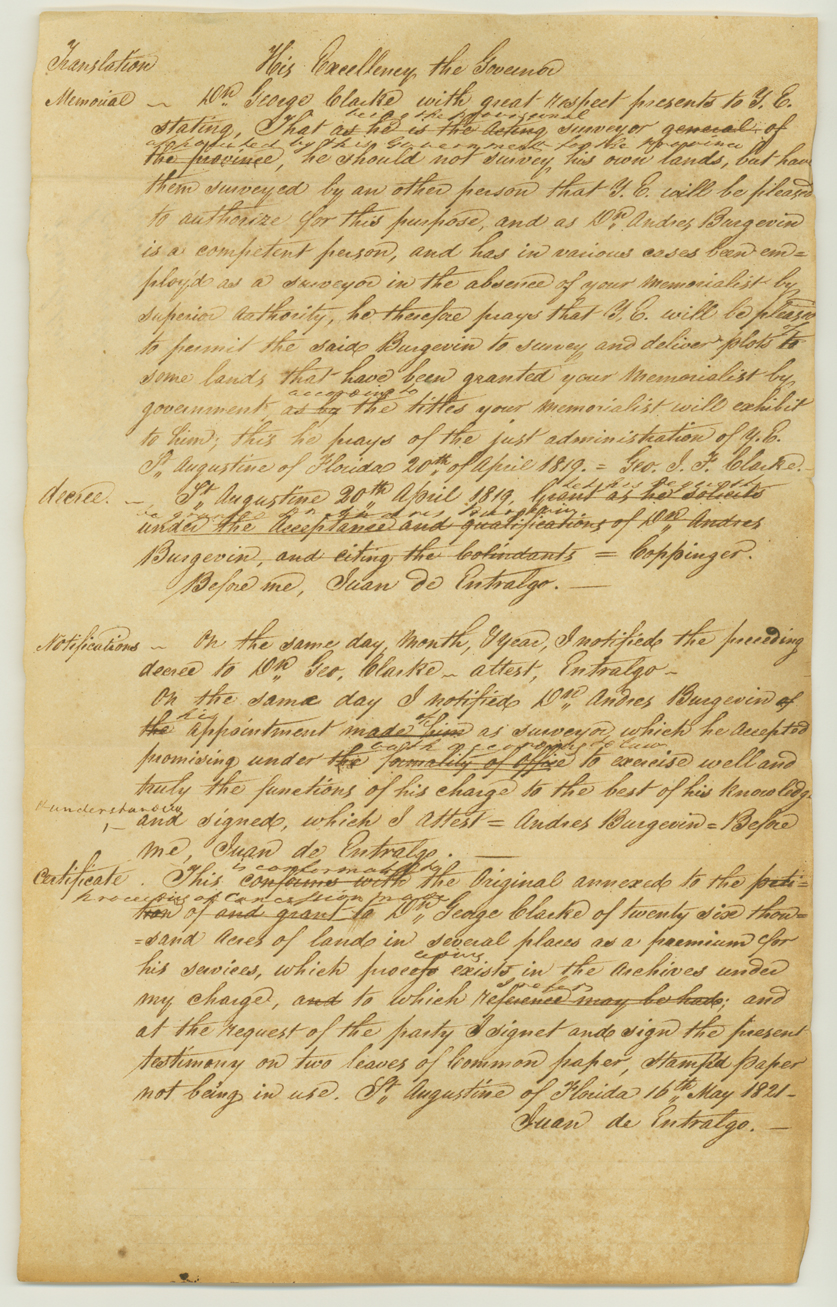 Translation His Excellency the Governor
Memorial – Dn. George Clarke with great respect presents to Y. E.
being the provisional
stating, That as he is the acting surveyor general of
appointed by this Government for the Province
the province, he should not survey his own lands, but have
them surveyed by an other person that Y. E. will be pleased
to authorize for this purpose, and as Dn. Andres Burgevin
is a competent person, and has in various cases been em=
ploy'd as a surveyor in the absence of your memorialist by
superior authority, he therefore prays that Y. E. will be pleased
to permit the said Burgevin to survey and deliver plots of to
some lands that have been granted your Memorialist by
according to
government, as by the titles your memorialist will exhibit
to him; this he prays of the just administration of Y. E.
St. Augustine of Florida 20th of April 1819. = Geo. J. F. Clarke.
decree. – St. Augustine 20th April 1819. Grant as he solicits
under the acceptance and qualifications of Dn. Andres
Burgevin, and citing the Colindants = Coppinger.
Before me, Juan de Entralgo. —
Notifications – On the same day, Month, & year, I notified the preceding
decree to Dn. Geo. Clarke – attest, Entralgo –
On the same day I notified Dn. Andres Burgevin of
his of
the appointment made him as surveyor, which he accepted
oath according to law
promising under the formality of office to exercise well and
truly the functions of his charge to the best of his knowledge
& understanding
and signed, which I Attest = Andres Burgevin = Before
me, Juan de Entralgo. —
is conformable to
Certificate. This conforms with the Original annexed to the peti=
proceedings of concession made
tion of and grant to Dn. George Clarke of twenty six thou=
=sand Acres of land in several places as a premium for
his services, which process exists in the Archives under
my charge, and to which reference may be had; and
at the request of the party I signet and sign the present
testimony on two leaves of Common paper, stamp'd paper
not being in use. St. Augustine of Florida 16th May 1821–
Juan de Entralgo. —